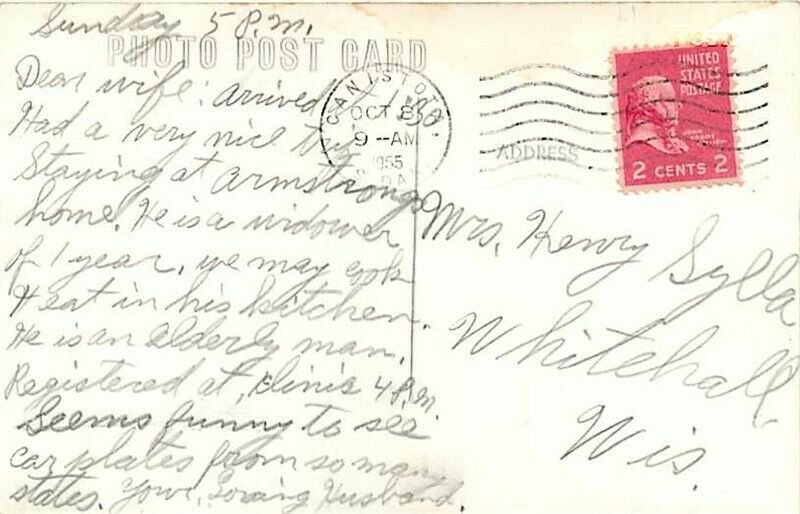 Sunday 5 P.M.
PHOTO POST CARD
Dear wife: arrived at 1:30
Had a very nice trip
Staying at Armstrongs
home. He is a widower
of 1 year, we may cook
& eat in his kitchen.
He is an elderly man.
Registered at clinic 4 P.M.
Seems funny to see
car plates from so many
states. Your Loving Husband.
CANISTOTA
OCT 8
9 -AM
1955
S. DAK.
UNITED
STATES
POSTAGE
JOHN
ADAMS
2 CENTS 2
ADDRESS
Mrs. Henry Sylla
Whitehall
Wis.